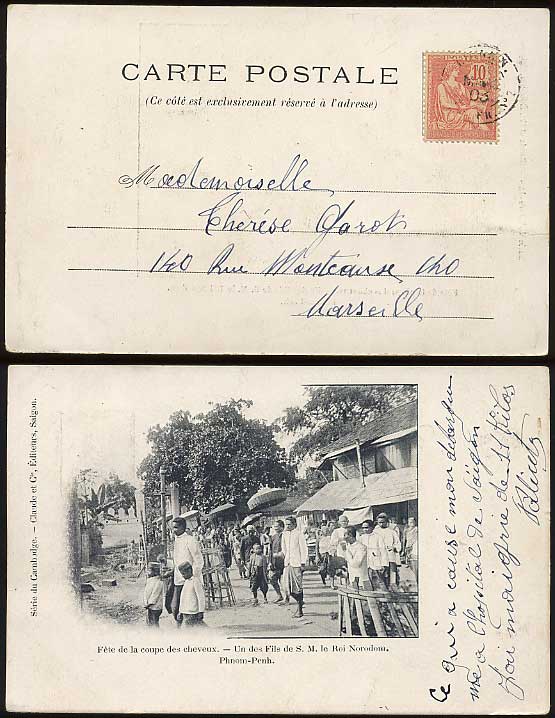 CARTE POSTALE
(Ce côté est exclusivement réservé à l'adresse)
10
03
Mademoiselle
Thérèse Garot
140 Rue
Marseille
Série du Cambodge. — Claude et Cie, Éditeurs, Saigon.
Fête de la coupe des cheveux. — Un des Fils de S. M. le Roi Norodom.
Phnom-Penh.
Ce qui a cause mon
à l'hospital de Saïgon
J'ai maigrie de 11 Kilos